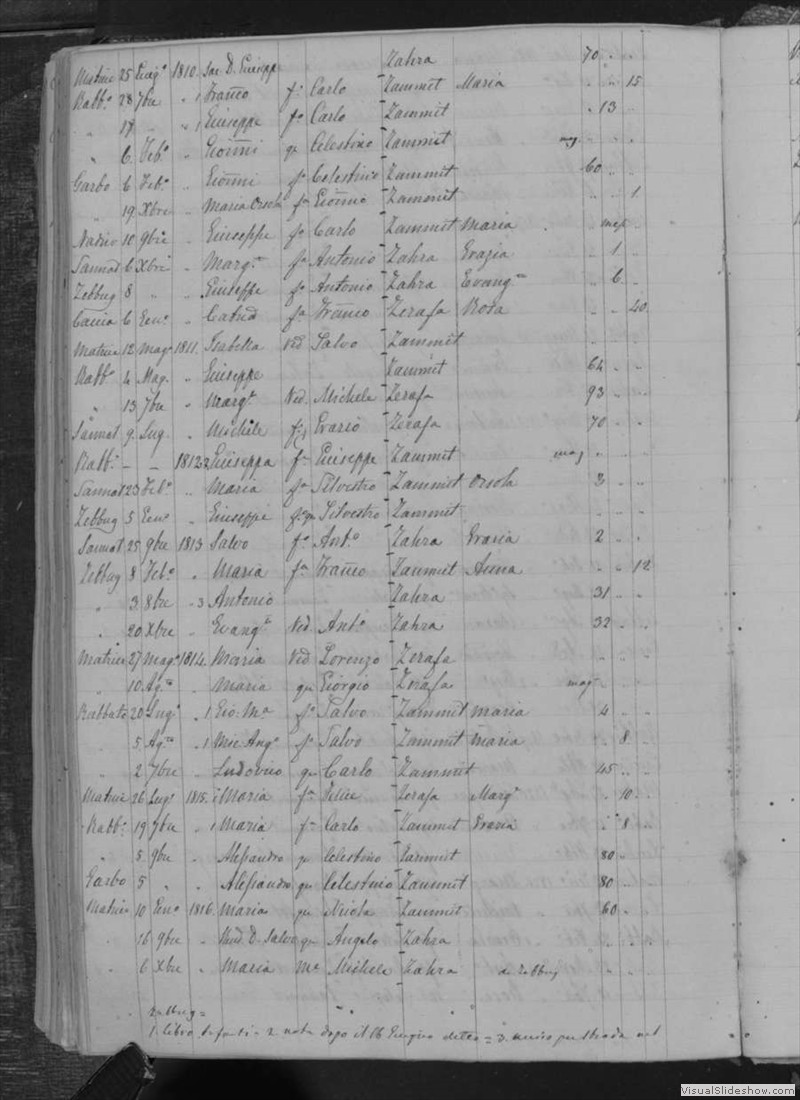 Matrice 25 Giug° 1810. Sac. D. Giuseppe Zahra 70 " "
Rabb.° 28 7bre " 1 Franco f° Carlo Zammit Maria " " 15
" 17 " " 1 Giuseppe f° Carlo Zammit " 13
" 6 Feb.° " Gioñni qu Celestino Zammit mag.
Garbo 6 Feb.° " Gioñni f° Celestino Zammit 60 " "
" 19 Xbre " Maria Orsola fa Zammit " " 1
Nadur 10 9bre " Giuseppe f° Carlo Zammit Maria
Sannat 6 Xbre " Marg.ta fa Antonio Zahra Grazia " 1 "
Zebbug 8 " " Giuseppe f° Antonio Zahra Evang.ta " 6 "
Caccia 6 Gen° " fa Franco Zerafa Rosa " " 40
Matrice 12 Mag° 1811. Isabella Ved Salvo Zammit
Rabb.° 4 Mag. " Giuseppe Zammit 64 " "
" 13 7bre " Marg.ta Ved. Michele Zerafa 93 " "
Sannat 9 Lug. " Michele f° Zerafa 70 " "
Rabb.° - - 1812 2 Giuseppa fa Giuseppe Zammit mag " "
Sannat 23 Feb.° " Maria fa Silvestro Zammit Orsola 3 " "
Zebbug 5 Gen° " Giuseppe Silvestro Zammit " " "
Sannat 25 9bre 1813 Salvo f° Ant.° Zahra Grazia 2 " "
Zebbug 8 Feb.° " Maria fa Franco Zammit Anna " " 12
" 3 8bre " 3 Antonio Zahra 31 " "
" 20 Xbre " Evang.ta Ved Ant.° Zahra 32 " "
Matrice 27 Mag.° 1814. Maria Ved Lorenzo Zerafa " " "
" 10 Ag.to " Maria qu Giorgio Zerafa mag. " "
Rabbato 20 Lug° " 1 Gio. Ma f° Salvo Zammit Maria 4 " "
" 5 Ag.to " 1 Mic. Ang° f° Salvo Zammit Maria " 8 "
" 2 7bre " Ludovico qu Carlo Zammit 45 " "
Matrice 26 Lug° 1815. 1 Maria fa Felice Zerafa Marg.ta " 10 "
Rabb.° 19 7bre " 1 Maria fa Carlo Zammit Grazia " 8 "
" 5 9bre " Alessandro qu Celestino Zammit 80 " "
Garbo 5 " " Alessandro qu Celestino Zammit 80 " "
Matrice 10 Gen° 1816. Maria qu Nicola Zammit 60 " "
" 16 9bre " D. Salvo qu Angelo Zahra " " "
" 6 Xbre " Maria Me Michele Zahra da Zebbug " " "
Zebbug =
1. libro Infanti = 2 nota dopo il 16 Giugno = 3.
VisualSlideshow.com